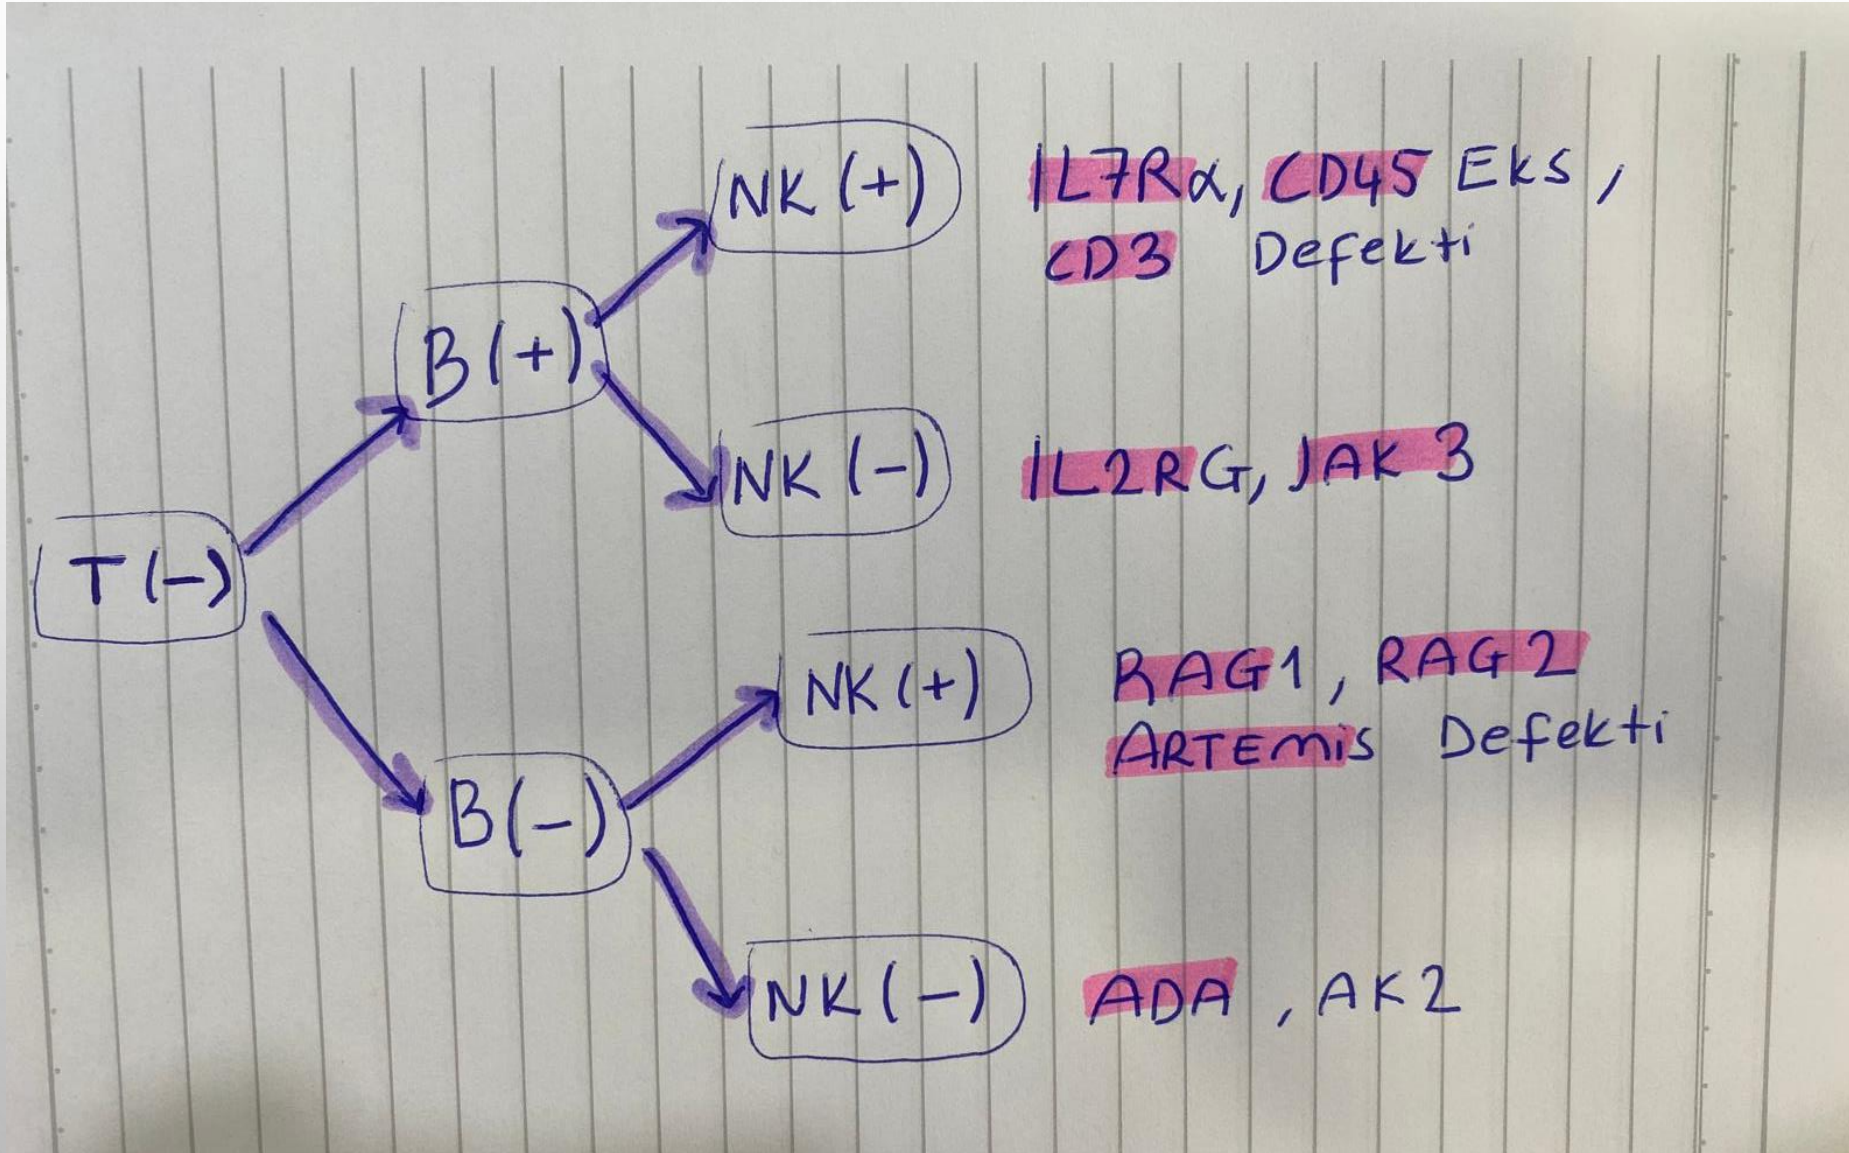 NK (+)
IL7Rα, CD45 Eks,
CD3 Defekti
B (+)
NK (-)
IL2RG, JAK 3
T (-)
NK (+)
RAG1, RAG 2
ARTEMİS Defekti
B (-)
NK (-)
ADA, AK2